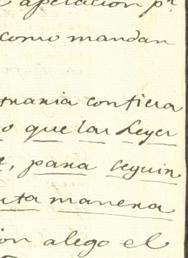 apelacion pr
como mandan
traria contiera
o que las Leyes
, para seguir
uta manera
on alego el